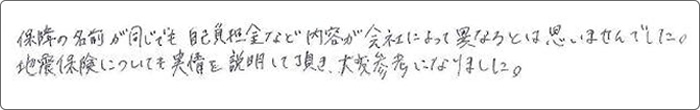 保障の名前が同じでも自己負担金など内容が会社によって異なるとは思いませんでした。
地震保険についても実情を説明して頂き、大変参考になりました。